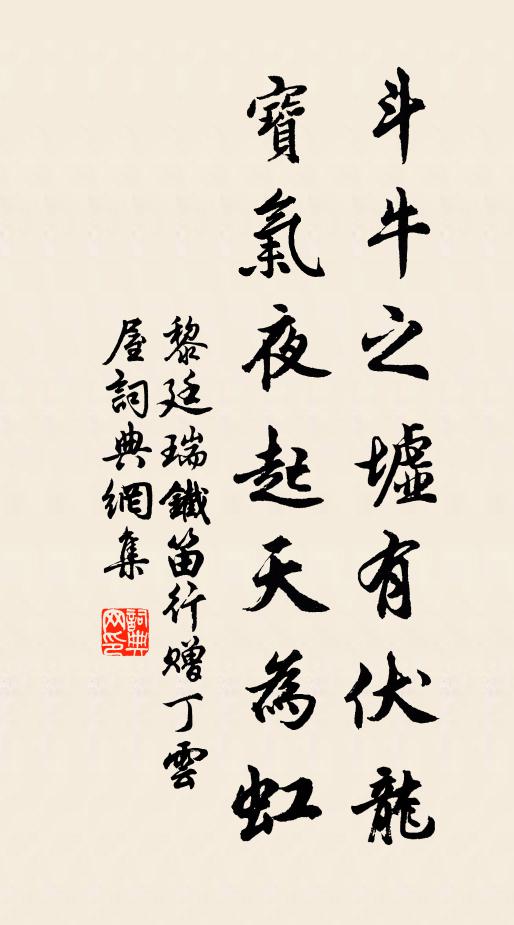 斗牛之墟有伏龍
寶氣夜起天為虹
黎廷瑞鐵笛行贈丁雲
屋詞典網集
詞典網印